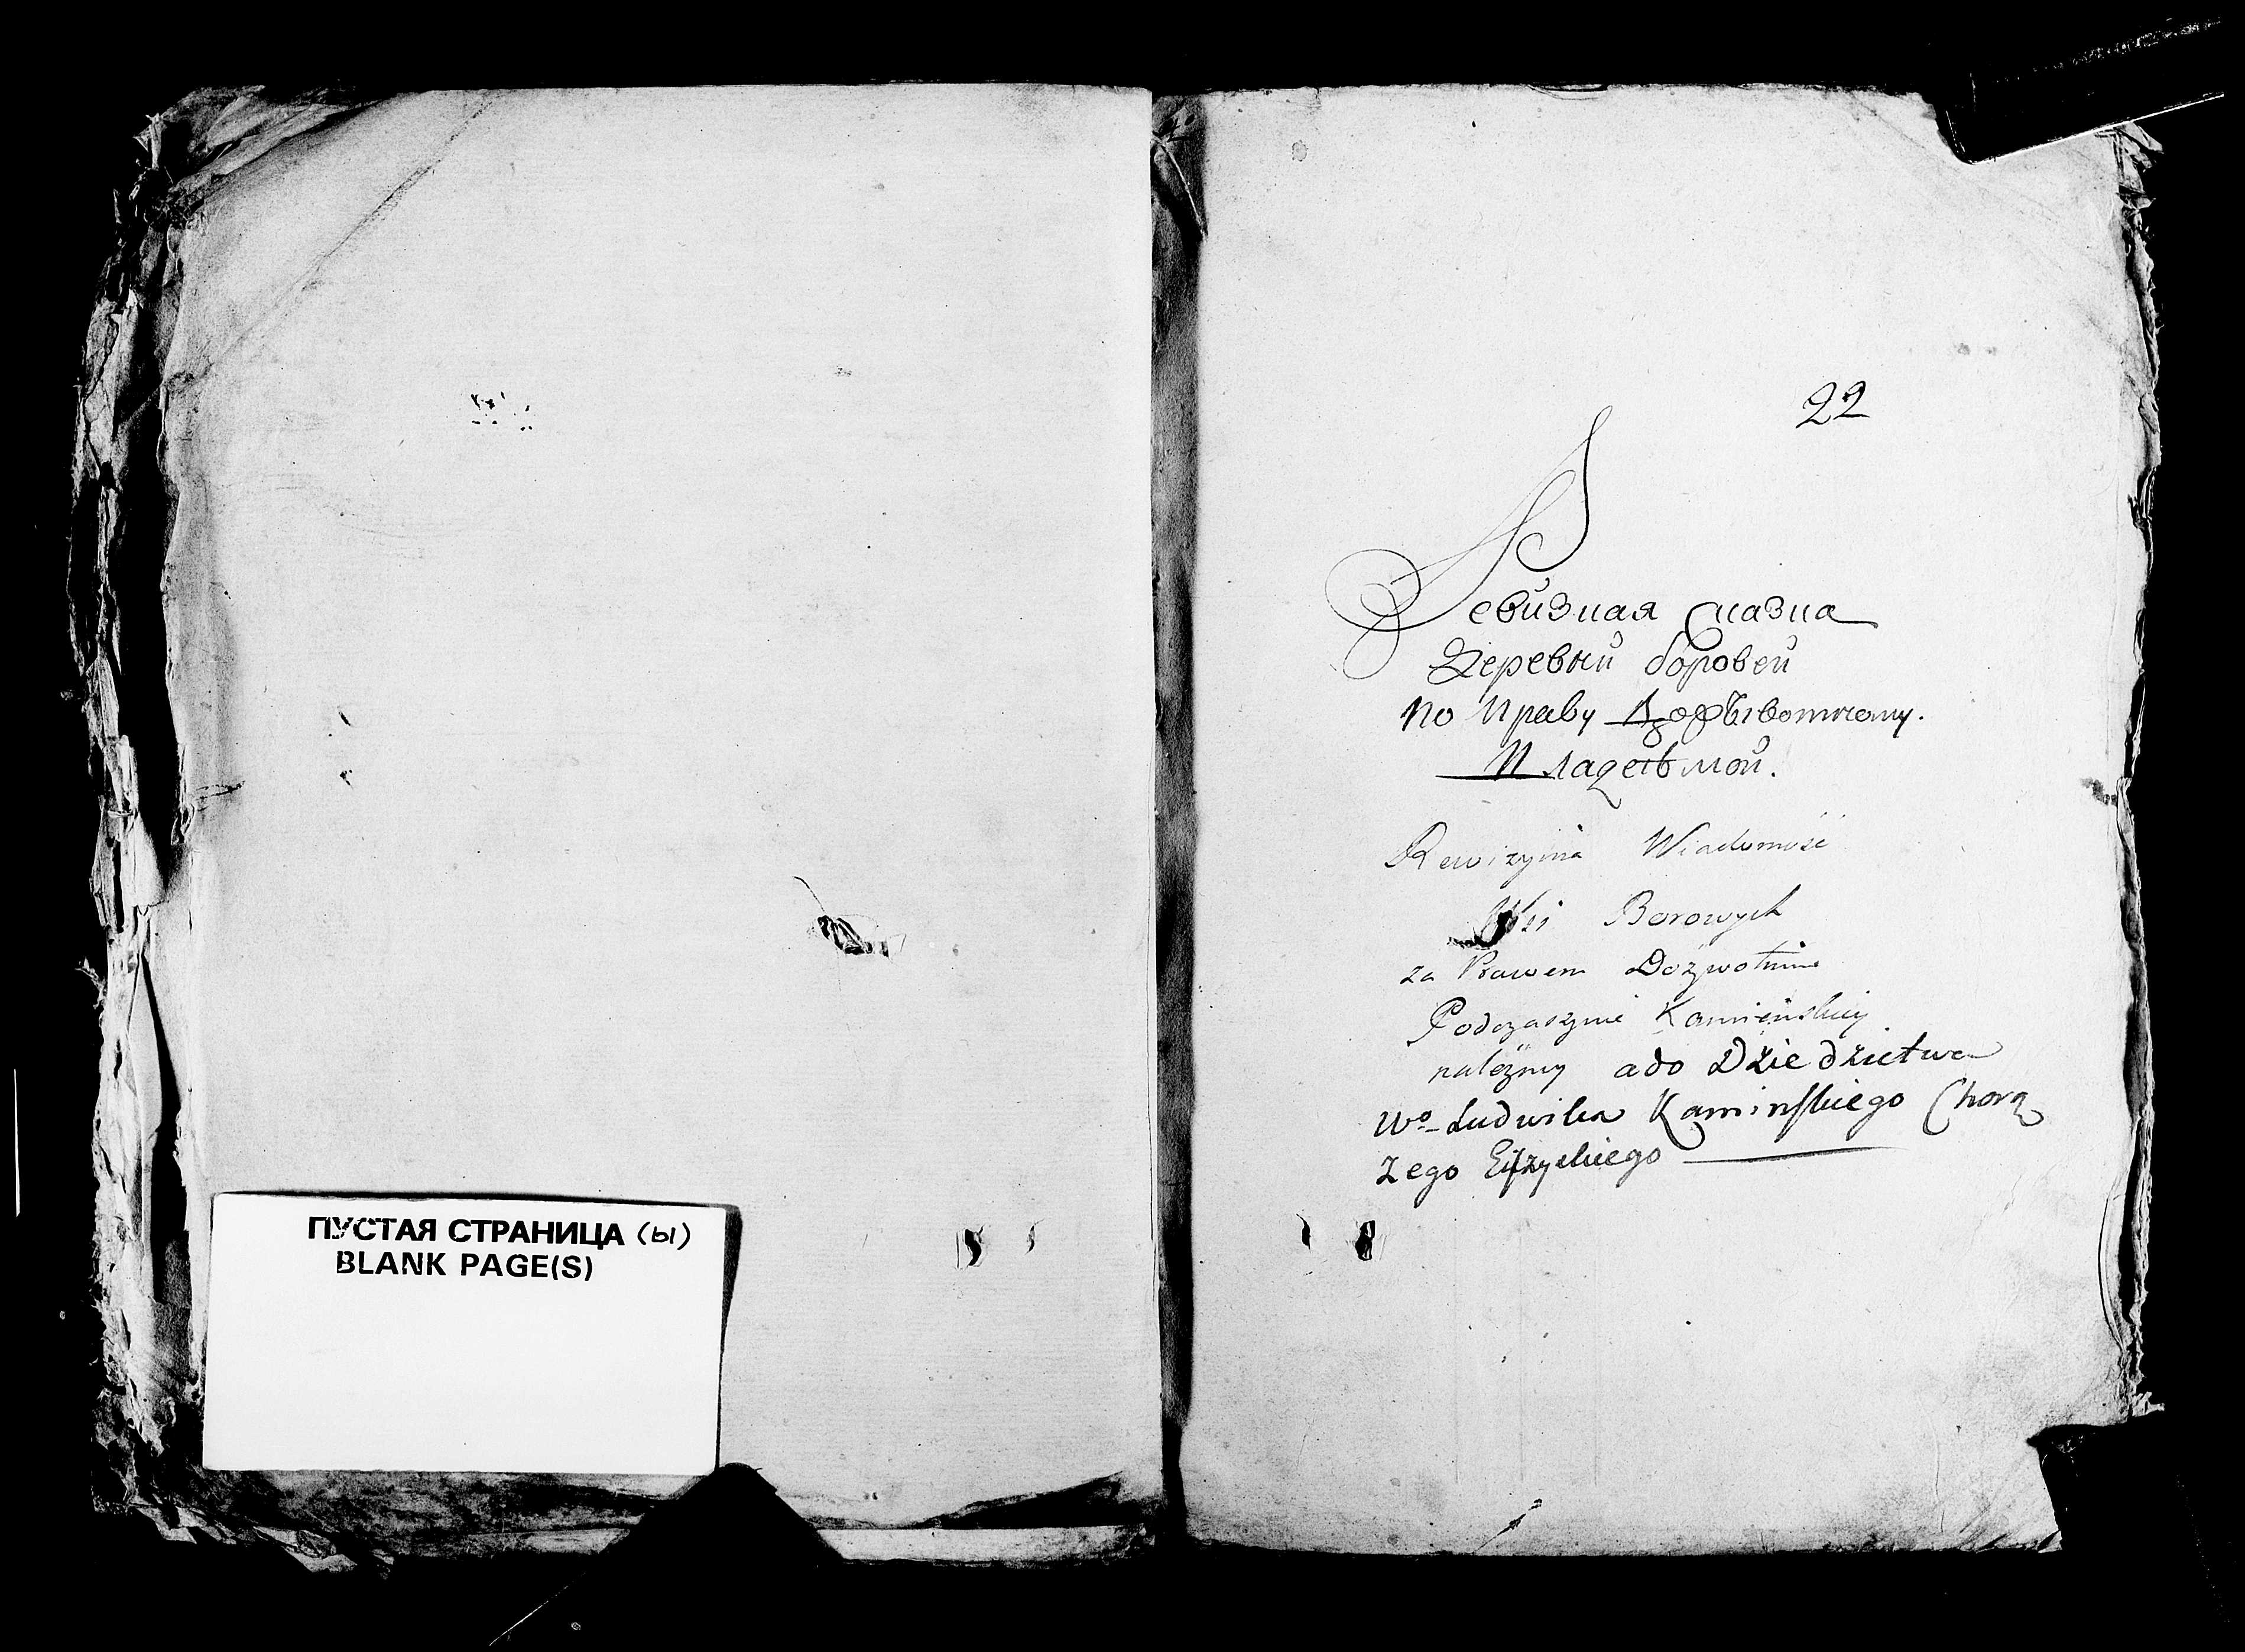 ПУСТАЯ СТРАНИЦА (ы)
BLANK PAGE(S)
22
Ревизная Сказка
Деревни боровеи
по Праву
Rewizyina Wiadomość
Wsi Borowych
za Prawem Dożywotnim
Podczaszynie Kamieńskiey
należney a do Dziedzictwa
Wo Ludwika Kaminskiego Chorą
Zego